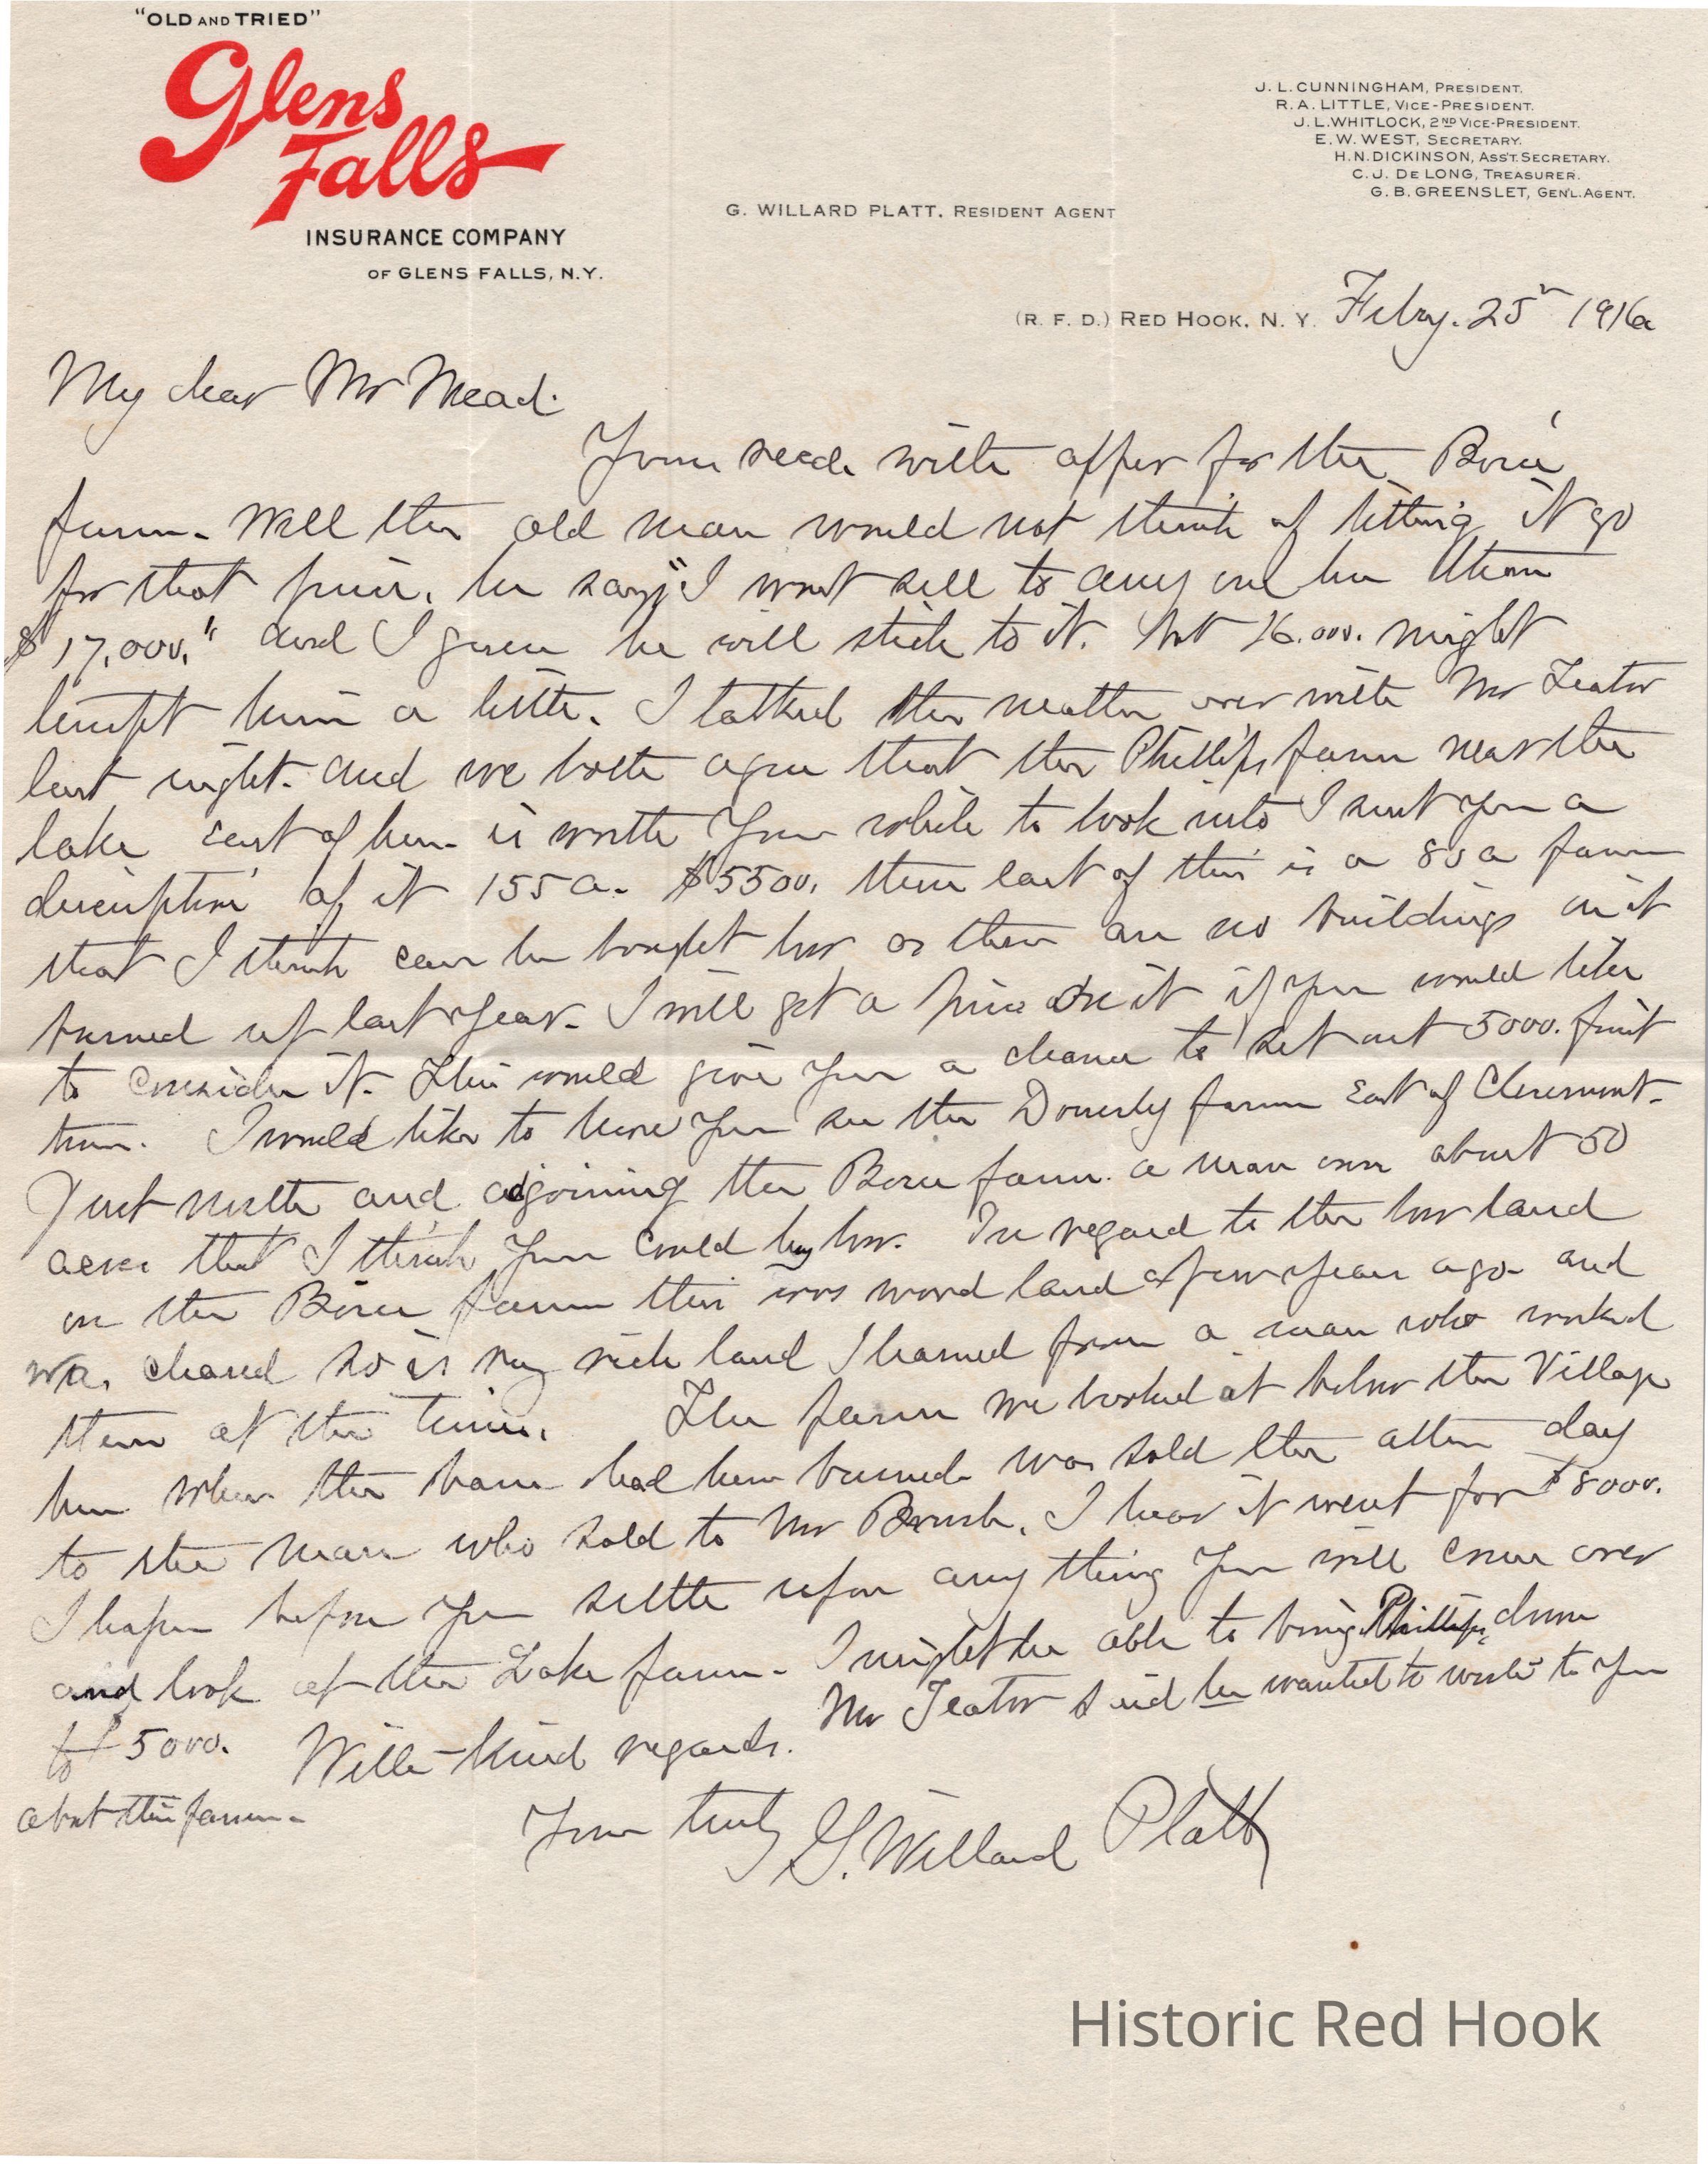 "OLD AND TRIED"
Glens
Falls
INSURANCE COMPANY
OF GLENS FALLS, N.Y.
J. L. CUNNINGHAM, PRESIDENT.
R. A. LITTLE, VICE-PRESIDENT.
J. L. WHITLOCK, 2ND VICE-PRESIDENT.
E. W. WEST, SECRETARY.
H. N. DICKINSON, ASS'T. SECRETARY.
C. J. DE LONG, TREASURER.
G. B. GREENSLET, GEN'L. AGENT.
G. WILLARD PLATT, RESIDENT AGENT
(R. F. D.) RED HOOK, N. Y. Feby. 25" 1916
My dear Mr Mead.
Yours recd. with offer for the
farm. Well the old man would not think of letting it go
for that price. he says "I wont sell to any one less than
$17,000." and I guess he will stick to it. but 16.000. might
tempt him a little. I talked the matter over with Mr Teator
last night. and we both agree that the Phillips farm near the
lake East of here is worth your while to look into I sent you a
description of it 155 a. $5500. then east of this is a 80 a farm
that I think can be bought low as there are no buildings on it
burned up last year. I will get a price on it if you would like
to consider it. This would give you a chance to set out 5000. fruit
trees. I would like to have you see the Donerly farm East of Clermont.
Just north and adjoining the farm. a man owns about 50
acres that I think you could buy low. In regard to the low land
on the farm this was wood land a few years ago and
was cleared so is very rich land I learned from a man who worked
there at the time. The farm we looked at below the Village
here where the barn had been burned was sold the other day
to the man who sold to Mr Brush. I hear it went for $8000.
I hope before you settle upon any thing you will come over
and look at the Lake farm. I might be able to bring Phillips down
to $5000. With kind regards. Mr Teator said he wanted to write to you
about this farm.
Yours truly G. Willard Platt
Historic Red Hook